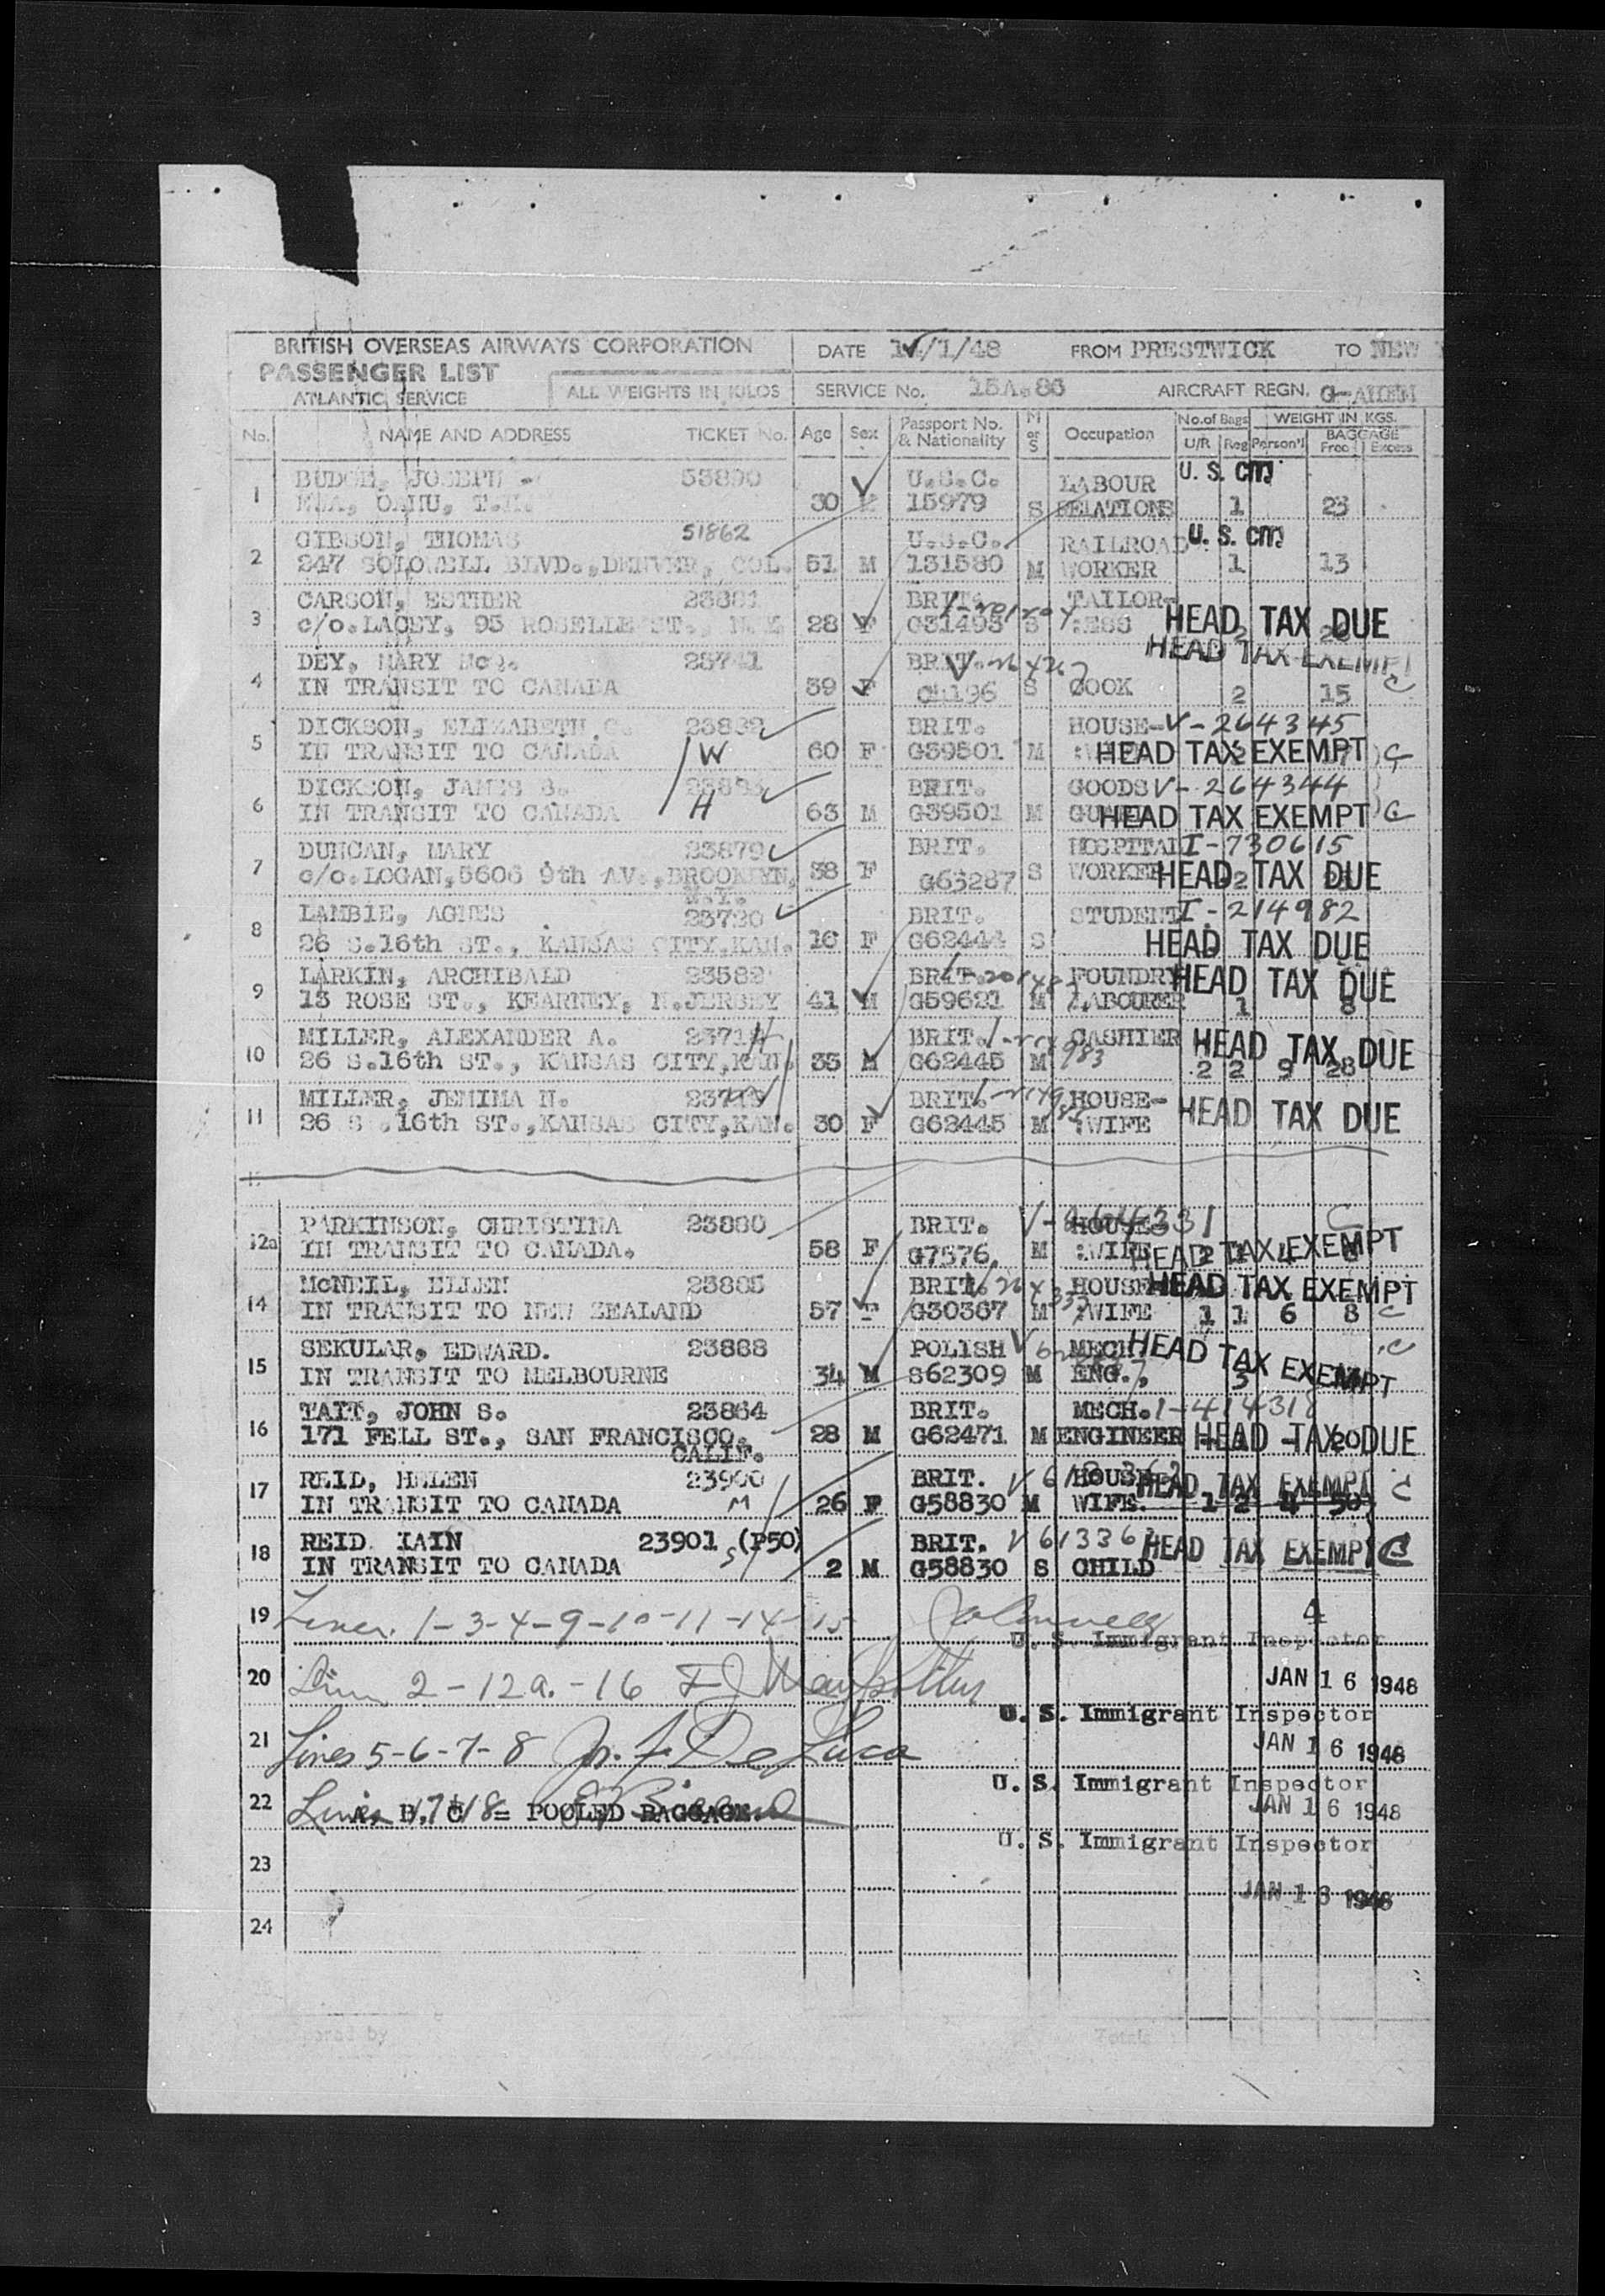 BRITISH OVERSEAS AIRWAYS CORPORATION
PASSENGER LIST
ATLANTIC SERVICE
ALL WEIGHTS IN KILOS
DATE /1/48 FROM PRESTWICK TO NEW
SERVICE No. 15A.86 AIRCRAFT REGN.
No. NAME AND ADDRESS TICKET No. Age Sex Passport No. & Nationality M or S Occupation No. of Bags U/R Reg WEIGHT IN KGS. Person'l BAGGAGE Free Excess
1 JOSEPH 53890 U.S.C. LABOUR U.S. cm
OAHU, 30 15979 S RELATIONS 1 23
2 GIBSON, THOMAS 51862 U.S.C. RAILROAD U.S. cm
247 BLVD., DENVER, COL. 51 M 131580 M WORKER 1 13
3 CARSON, ESTHER 23881 BRIT. TAILOR-
c/o. LACEY, 95 ROSELLE ST., N.Y. 28 F G31493 S :ESS HEAD TAX DUE
4 DEY, MARY 23741 BRIT. HEAD TAX EXEMPT
IN TRANSIT TO CANADA 39 F S COOK 2 15 C
5 DICKSON, ELIZABETH 23832 BRIT. HOUSE- V-264345
IN TRANSIT TO CANADA W 60 F G39501 M HEAD TAX EXEMPT C
6 DICKSON, JAMES BRIT. GOODS V-264344
IN TRANSIT TO CANADA H 63 M G39501 M HEAD TAX EXEMPT C
7 DUNCAN, MARY 23879 BRIT. HOSPITAL I-730615
c/o. LOGAN, 5606 9th AV., BROOKLYN, N.Y. 38 F G63287 S WORKER HEAD TAX DUE
8 LAMBIE, AGNES 23720 BRIT. STUDENT I-214982
26 S.16th ST., KANSAS CITY, KAN. 16 F G62444 S HEAD TAX DUE
9 LARKIN, ARCHIBALD 23582 BRIT. FOUNDRY HEAD TAX DUE
13 ROSE ST., KEARNEY, N.JERSEY 41 M G59621 M LABOURER 1 8
10 MILLER, ALEXANDER A. H BRIT. CASHIER HEAD TAX DUE
26 S.16th ST., KANSAS CITY, KAN. 35 M G62445 M 2 2 9 28
11 MILLER, JEMIMA N. BRIT. HOUSE- HEAD TAX DUE
26 S.16th ST., KANSAS CITY, KAN. 30 F G62445 M :WIFE
12a PARKINSON, CHRISTINA 23880 BRIT. HOUSE- C
IN TRANSIT TO CANADA. 58 F G7576 M :WIFE HEAD TAX EXEMPT
14 McNEIL, ELLEN 23885 BRIT. HOUSE- HEAD TAX EXEMPT
IN TRANSIT TO NEW ZEALAND 57 F G30367 M :WIFE 1 1 6 8 C
15 SEKULAR, EDWARD. 23888 POLISH MECH. HEAD TAX EXEMPT C
IN TRANSIT TO MELBOURNE 34 M S62309 M ENG.,
16 TAIT, JOHN S. 23864 BRIT. MECH.
171 FELL ST., SAN FRANCISCO. CALIF. 28 M G62471 M ENGINEER HEAD TAX DUE 20
17 REID, HELEN 23900 BRIT. HOUSE HEAD TAX EXEMPT C
IN TRANSIT TO CANADA M 26 F G58830 M WIFE. 1 2 4 50
18 REID IAIN 23901 (P50) BRIT. HEAD TAX EXEMPT C
IN TRANSIT TO CANADA S 2 M G58830 S CHILD
19 1-3-4-9-10-11-14-15 4
U. S. Immigrant Inspector
20 2-12a.-16 JAN 16 1948
U. S. Immigrant Inspector
21 Lines 5-6-7-8 De Luca JAN 16 1948
U. S. Immigrant Inspector
22 Lines 17+18 A, B, C = POOLED BAGGAGE. JAN 16 1948
U. S. Immigrant Inspector
23
JAN 1 1948
24